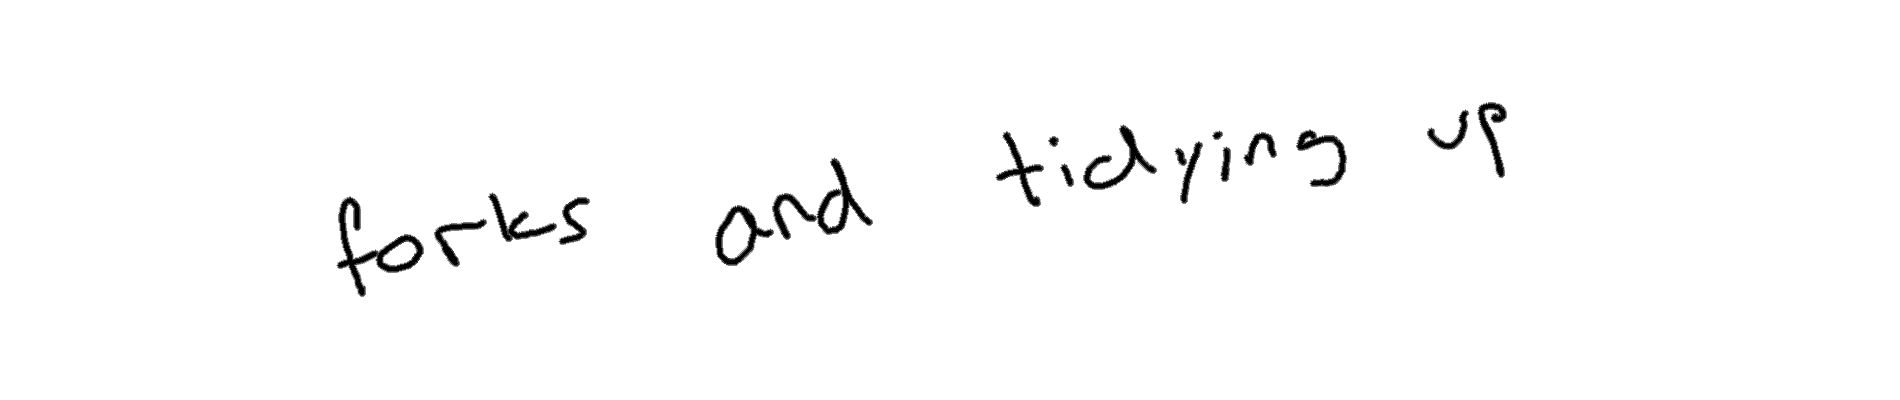 forks and tidying up